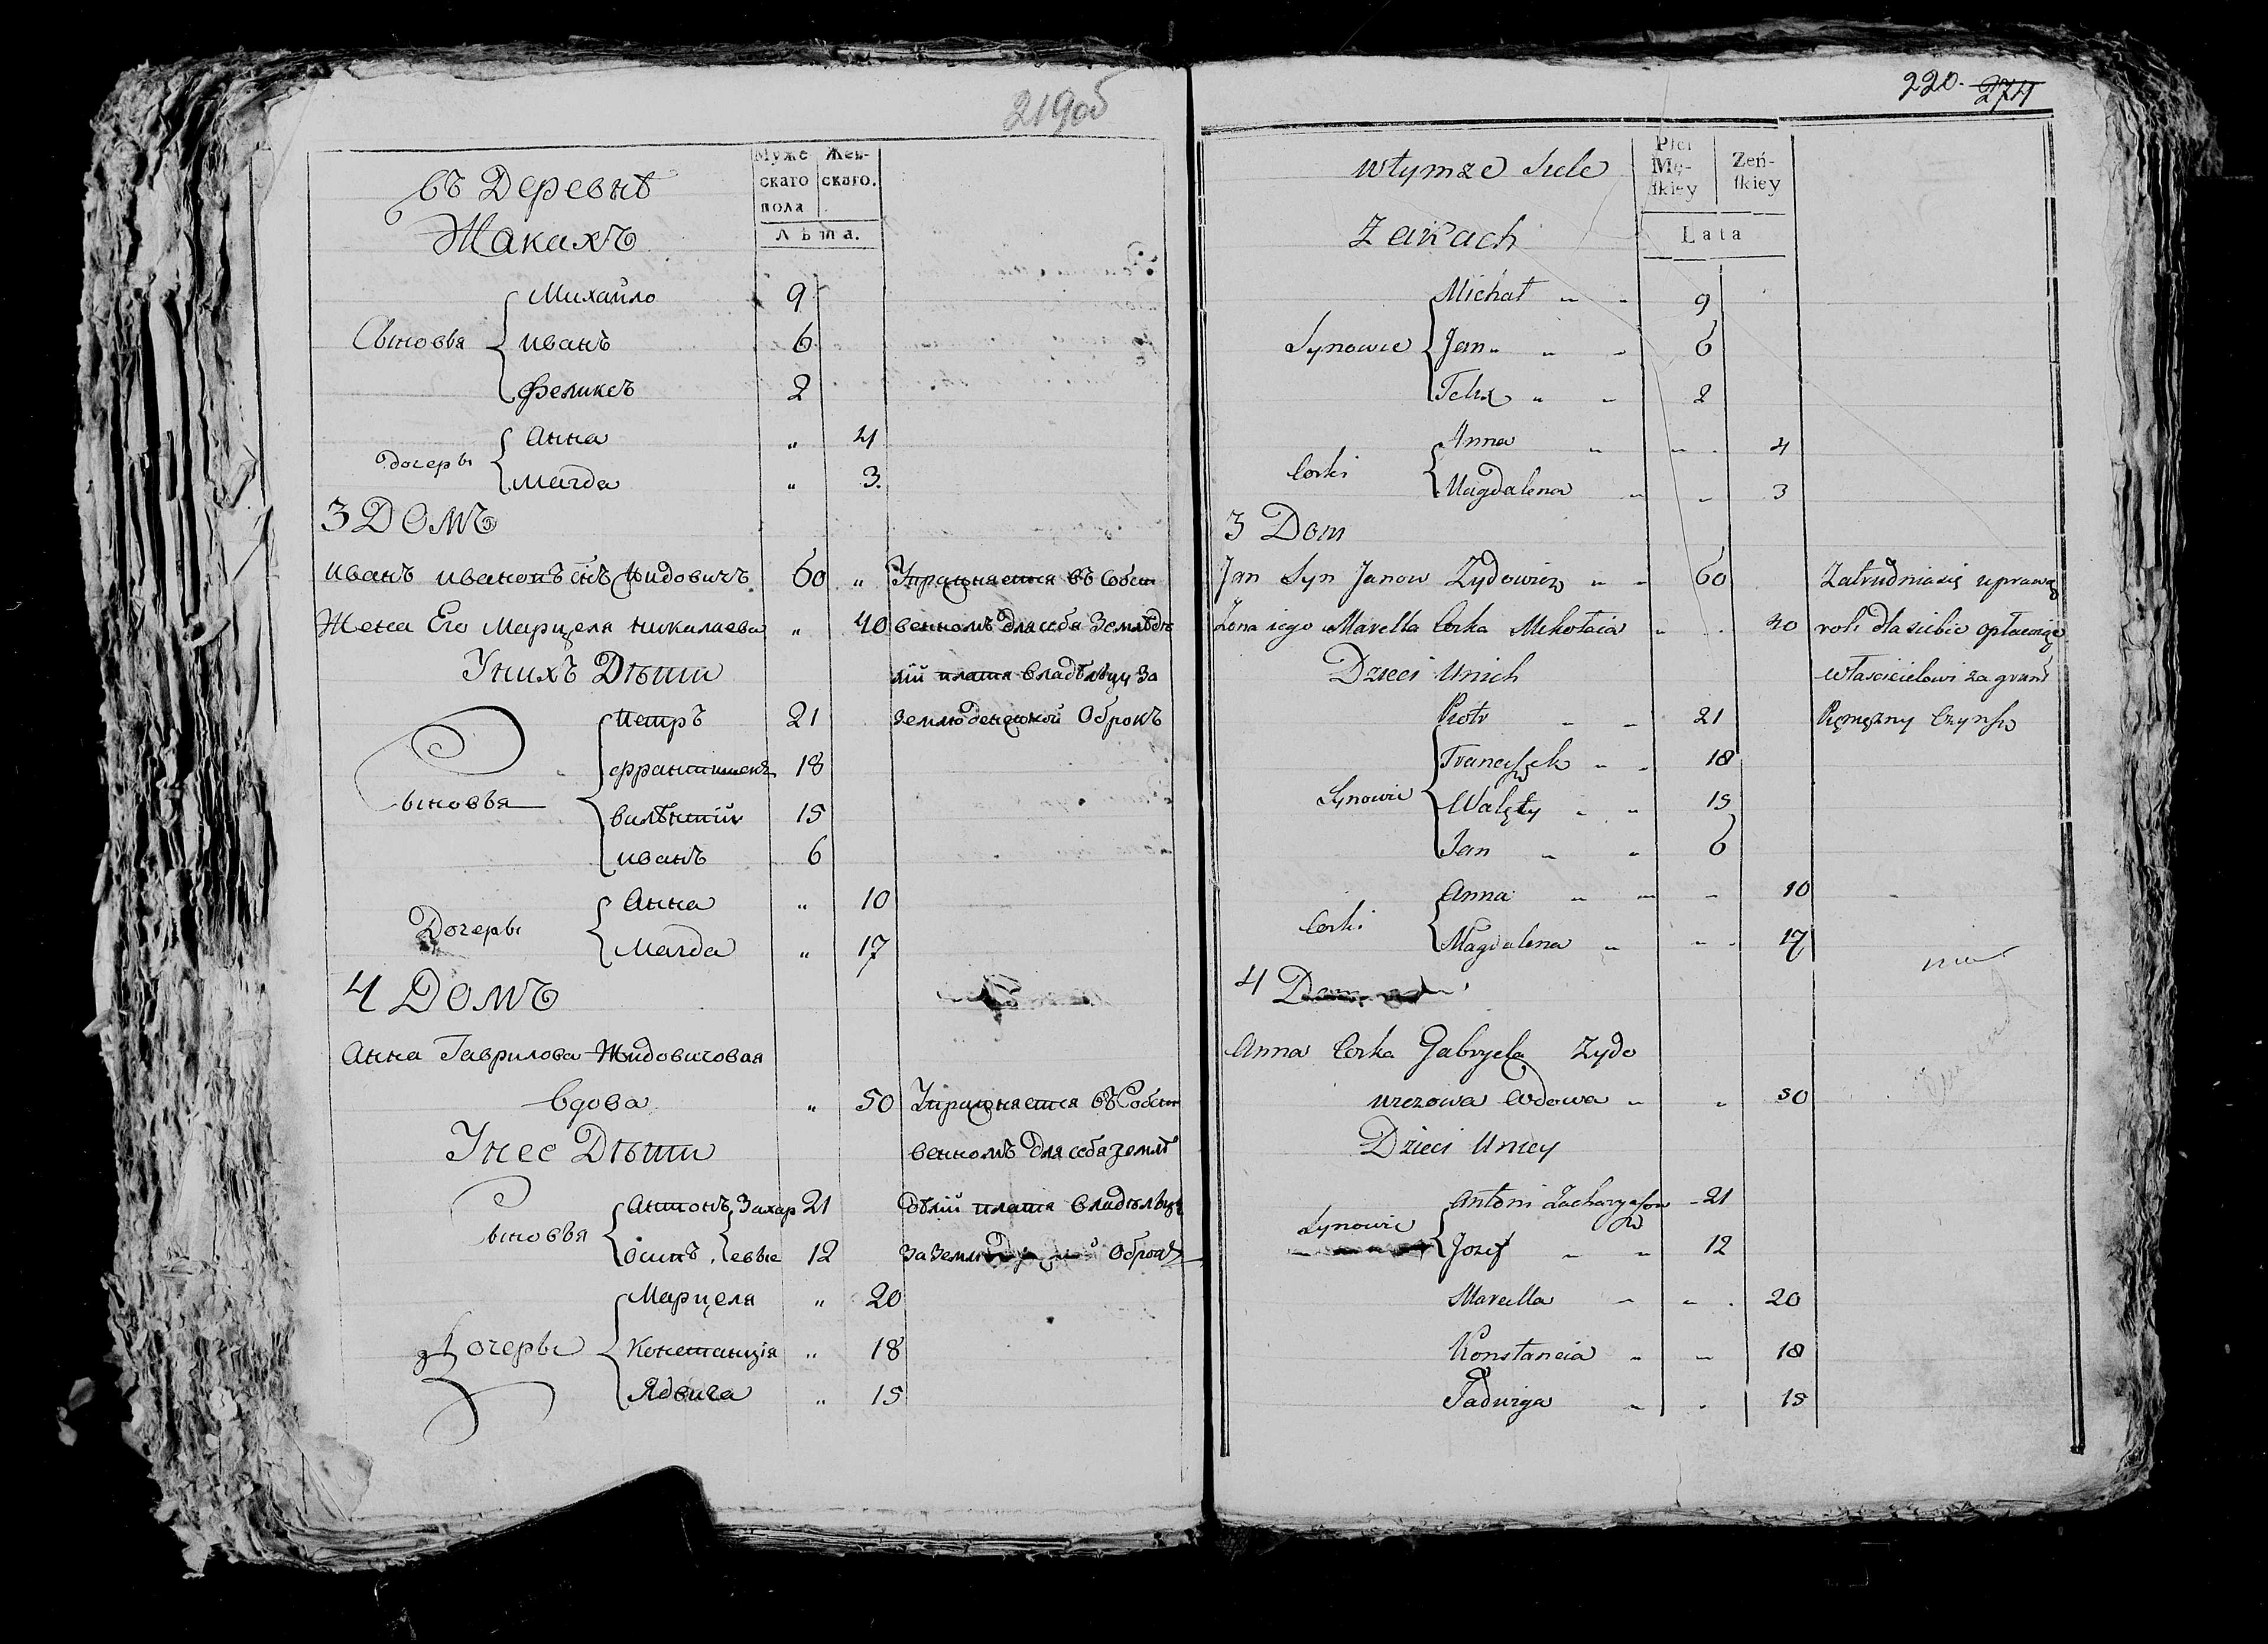 219об
въ Деревнѣ
Жакахъ
Муже Жен-
скаго скаго.
пола
Лѣта.
Сыновья Михайло 9
Иванъ 6
Феликсъ 2
Дочеры Анна " 4
Магда " 3.
3 Домъ
Иванъ Ивановъ сѣ Жидовичъ 60 " Упражняется въ Собст
Жена Его Марцеля Николаева " 40 венномъ для себя Земледѣ
У нихъ Дѣти лій платя владѣльцу за
Сыновья Петръ 21 землю денежной Оброкъ
Францишекъ 18
Валѣнтій 15
Иванъ 6
Дочеры Анна " 10
Магда " 17
4 Домъ
Анна Гаврилова Жидовичовая
вдова " 50 Упражняется въ Собст
У нее Дѣти венномъ для себя землѣ
Сыновья Антонъ Захар 21 дѣлій платя владѣльцу
Осипъ евые 12 за землю Оброкъ
Дочеры Марцеля " 20
Констанція " 18
Ядвига " 15
220. 274
w tymze Siele
Zakach
Płci
Mę- Żeń-
skiey skiey
Lata
Synowie Michał " " 9
Jan " " 6
Felix " " 2
Corki Anna " " 4
Magdalena " " 3
3 Dom
Jan Syn Janow Zydowicz " " 60 Zatrudnia się uprawą
Zona iego Marella Corka Mikołaia " 40 roli dla siebie opłacaiąc
Dzieci U nich właścicielowi za grunt
Synowie Piotr " " 21 Pięniężny Czynsz
Franciszek " " 18
Walęty " " 15
Jan " " 6
Corki Anna " " " 10
Magdalena " " 17
4 Dom
Anna Corka Gabryela Zydo
wiczowa Wdowa " " 50
Dzieci U niey
Synowie Antoni Zacharyaszow - 21
Jozef " " 12
Marcella " " 20
Konstancia " " 18
Jadwiga " " 15